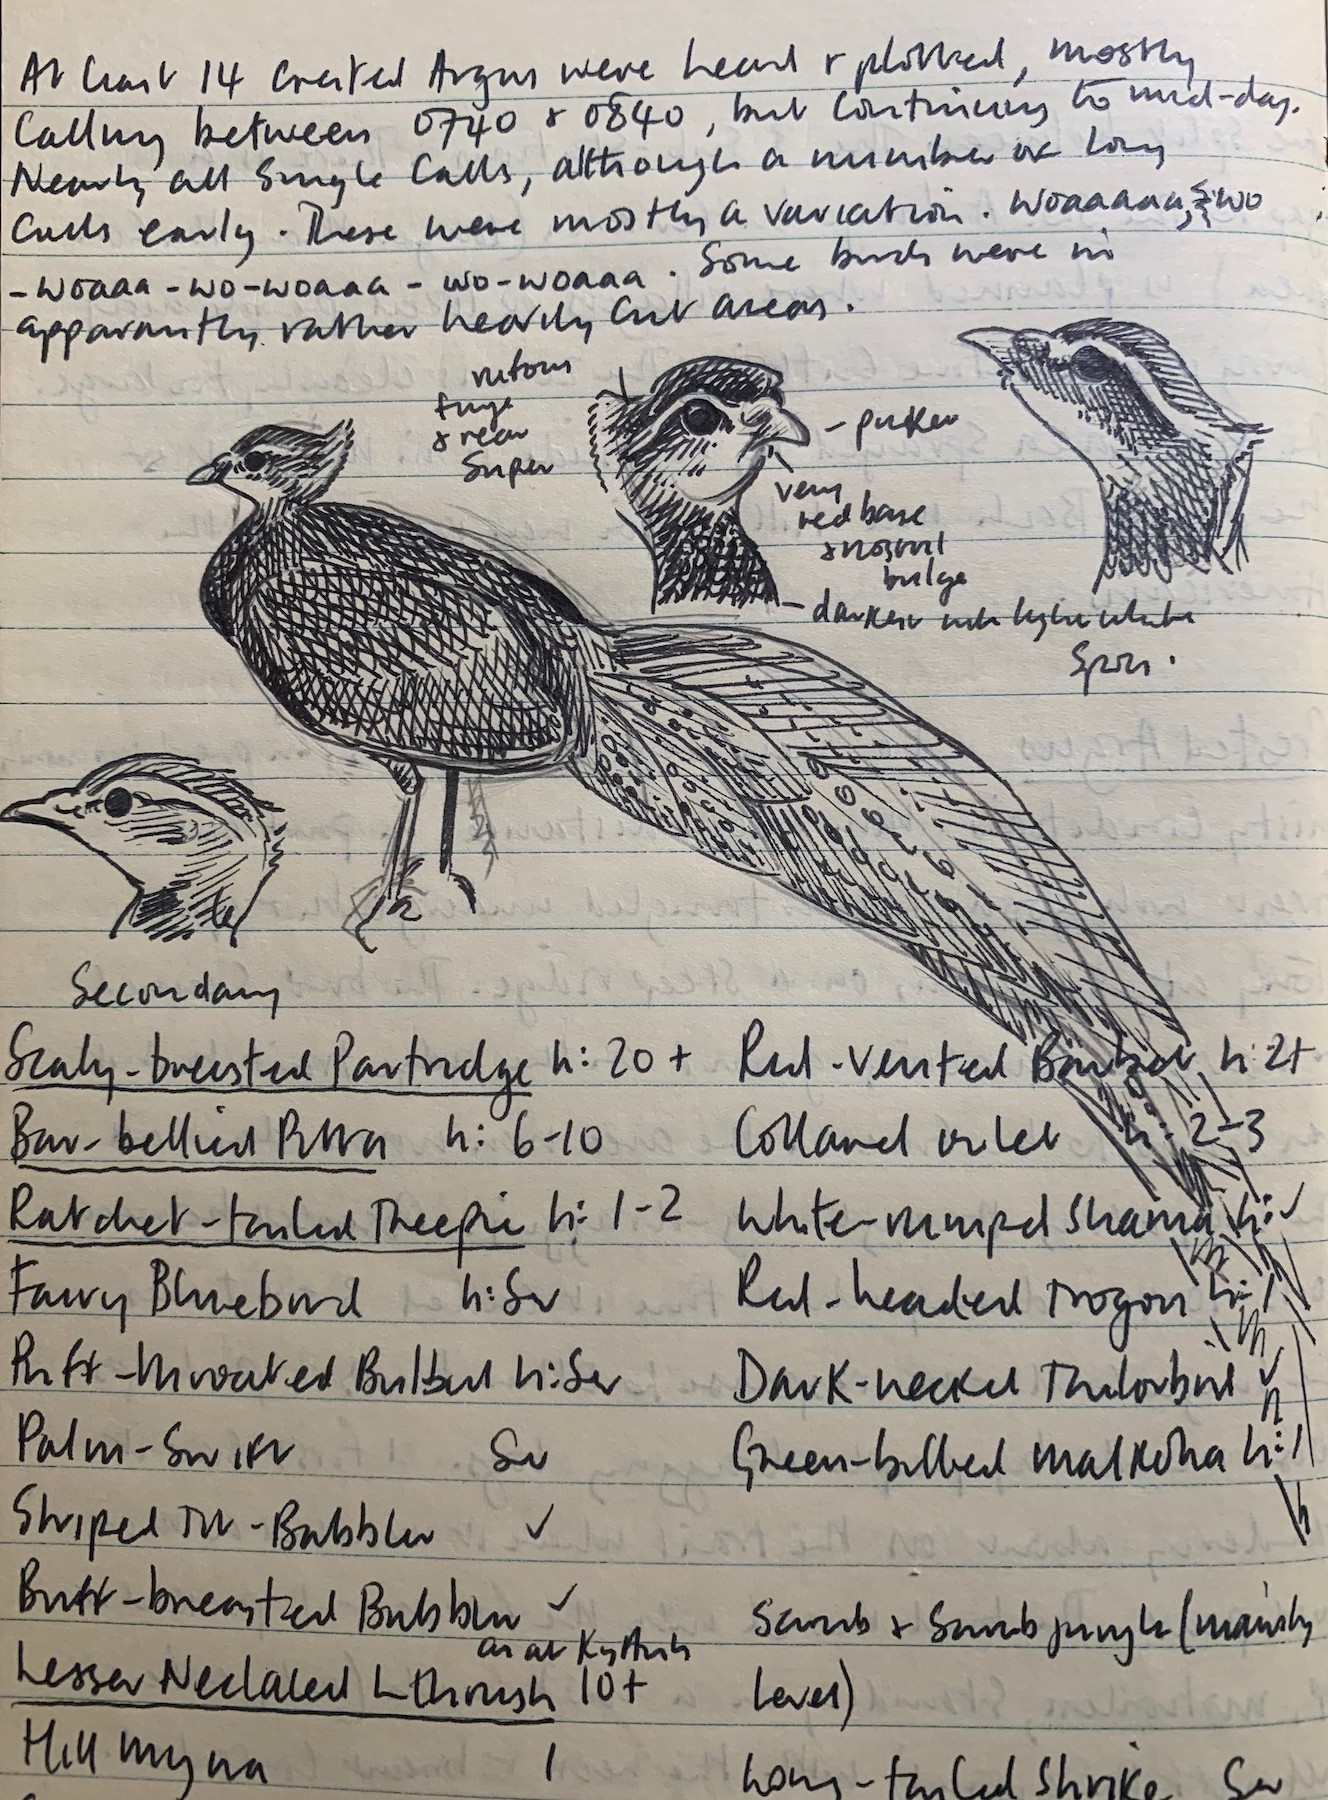 At least 14 Crested Argus were heard & plotted, mostly
Calling between 0740 & 0840, but continuing to mid-day.
Nearly all Single Calls, although a number of long
Calls early. These were mostly a variation. woaaaaa, wo
-woaaa-wo-woaaa - wo-woaaa. Some birds were in
apparantly rather heavily cut areas.
rufous
& rear
Super
- pinker
very
red base
& nostril
bulge
- darker with white
Spots.
Secondary
Scaly-breasted Partridge h: 20+
Bar-bellied Pitta h: 6-10
Ratchet-tailed Treepie h: 1-2
Fairy Bluebird h: Sv
Puff-throated Bulbul h: Sv
Palm-Swift Sv
Striped Tit-Babbler ✓
Buff-breasted Babbler ✓
as at Ky Anh
Lesser Necklaced Lthrush 10+
Hill myna 1
Red-vented Barbet h: 2+
Collared owlet h: 2-3
White-rumped Shama h: ✓
Red-headed Trogon h: 1
Dark-necked Tailorbird ✓
Green-billed malkoha h: 1
Scrub & Scrub jungle (mainly
level)
Long-tailed Shrike Sv